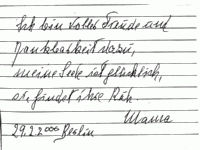 Ich bin voller Freude und
Dankbarkeit dazu,
meine Seele ist glücklich,
es findet ihre Ruh.
Mama
29.2.2000 Berlin